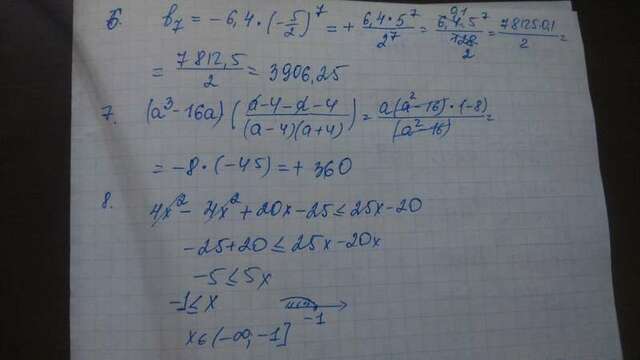 6. b₇ = -6,4·(-5/2)⁷ = + 6,4·5⁷/2⁷ = 6,4·5⁷/128 0,1 2 = 78125·0,1/2 =
= 7812,5/2 = 3906,25
7. (a³-16a)(a-4-a-4/(a-4)(a+4)) = a(a²-16)·(-8)/(a²-16) =
= -8·(-45) = + 360
8.
4x² - 4x² + 20x - 25 ≤ 25x - 20
-25+20 ≤ 25x - 20x
-5 ≤ 5x
-1 ≤ x
-1
x ∈ (-∞, -1]